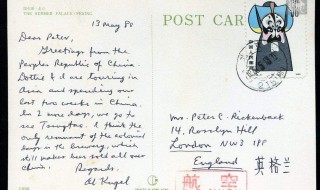 THE SUMMER PALACE-PEKING
POST CARD
13 May 80
Dear Peter,
Greetings from the
Peoples Republic of China.
Dottie & I are touring in
Asia and spending our
last two weeks in China.
In 2 more days, we go to
see Tsingtao. I think the
only remnant of the colonial
days is the brewery, which
still makes beer sold all over
China.
Regards.
Al Kugel
Mr. Peter C. Rickenback
14, Rosslyn Hill
London NW3 1PF
England 英格兰
航空